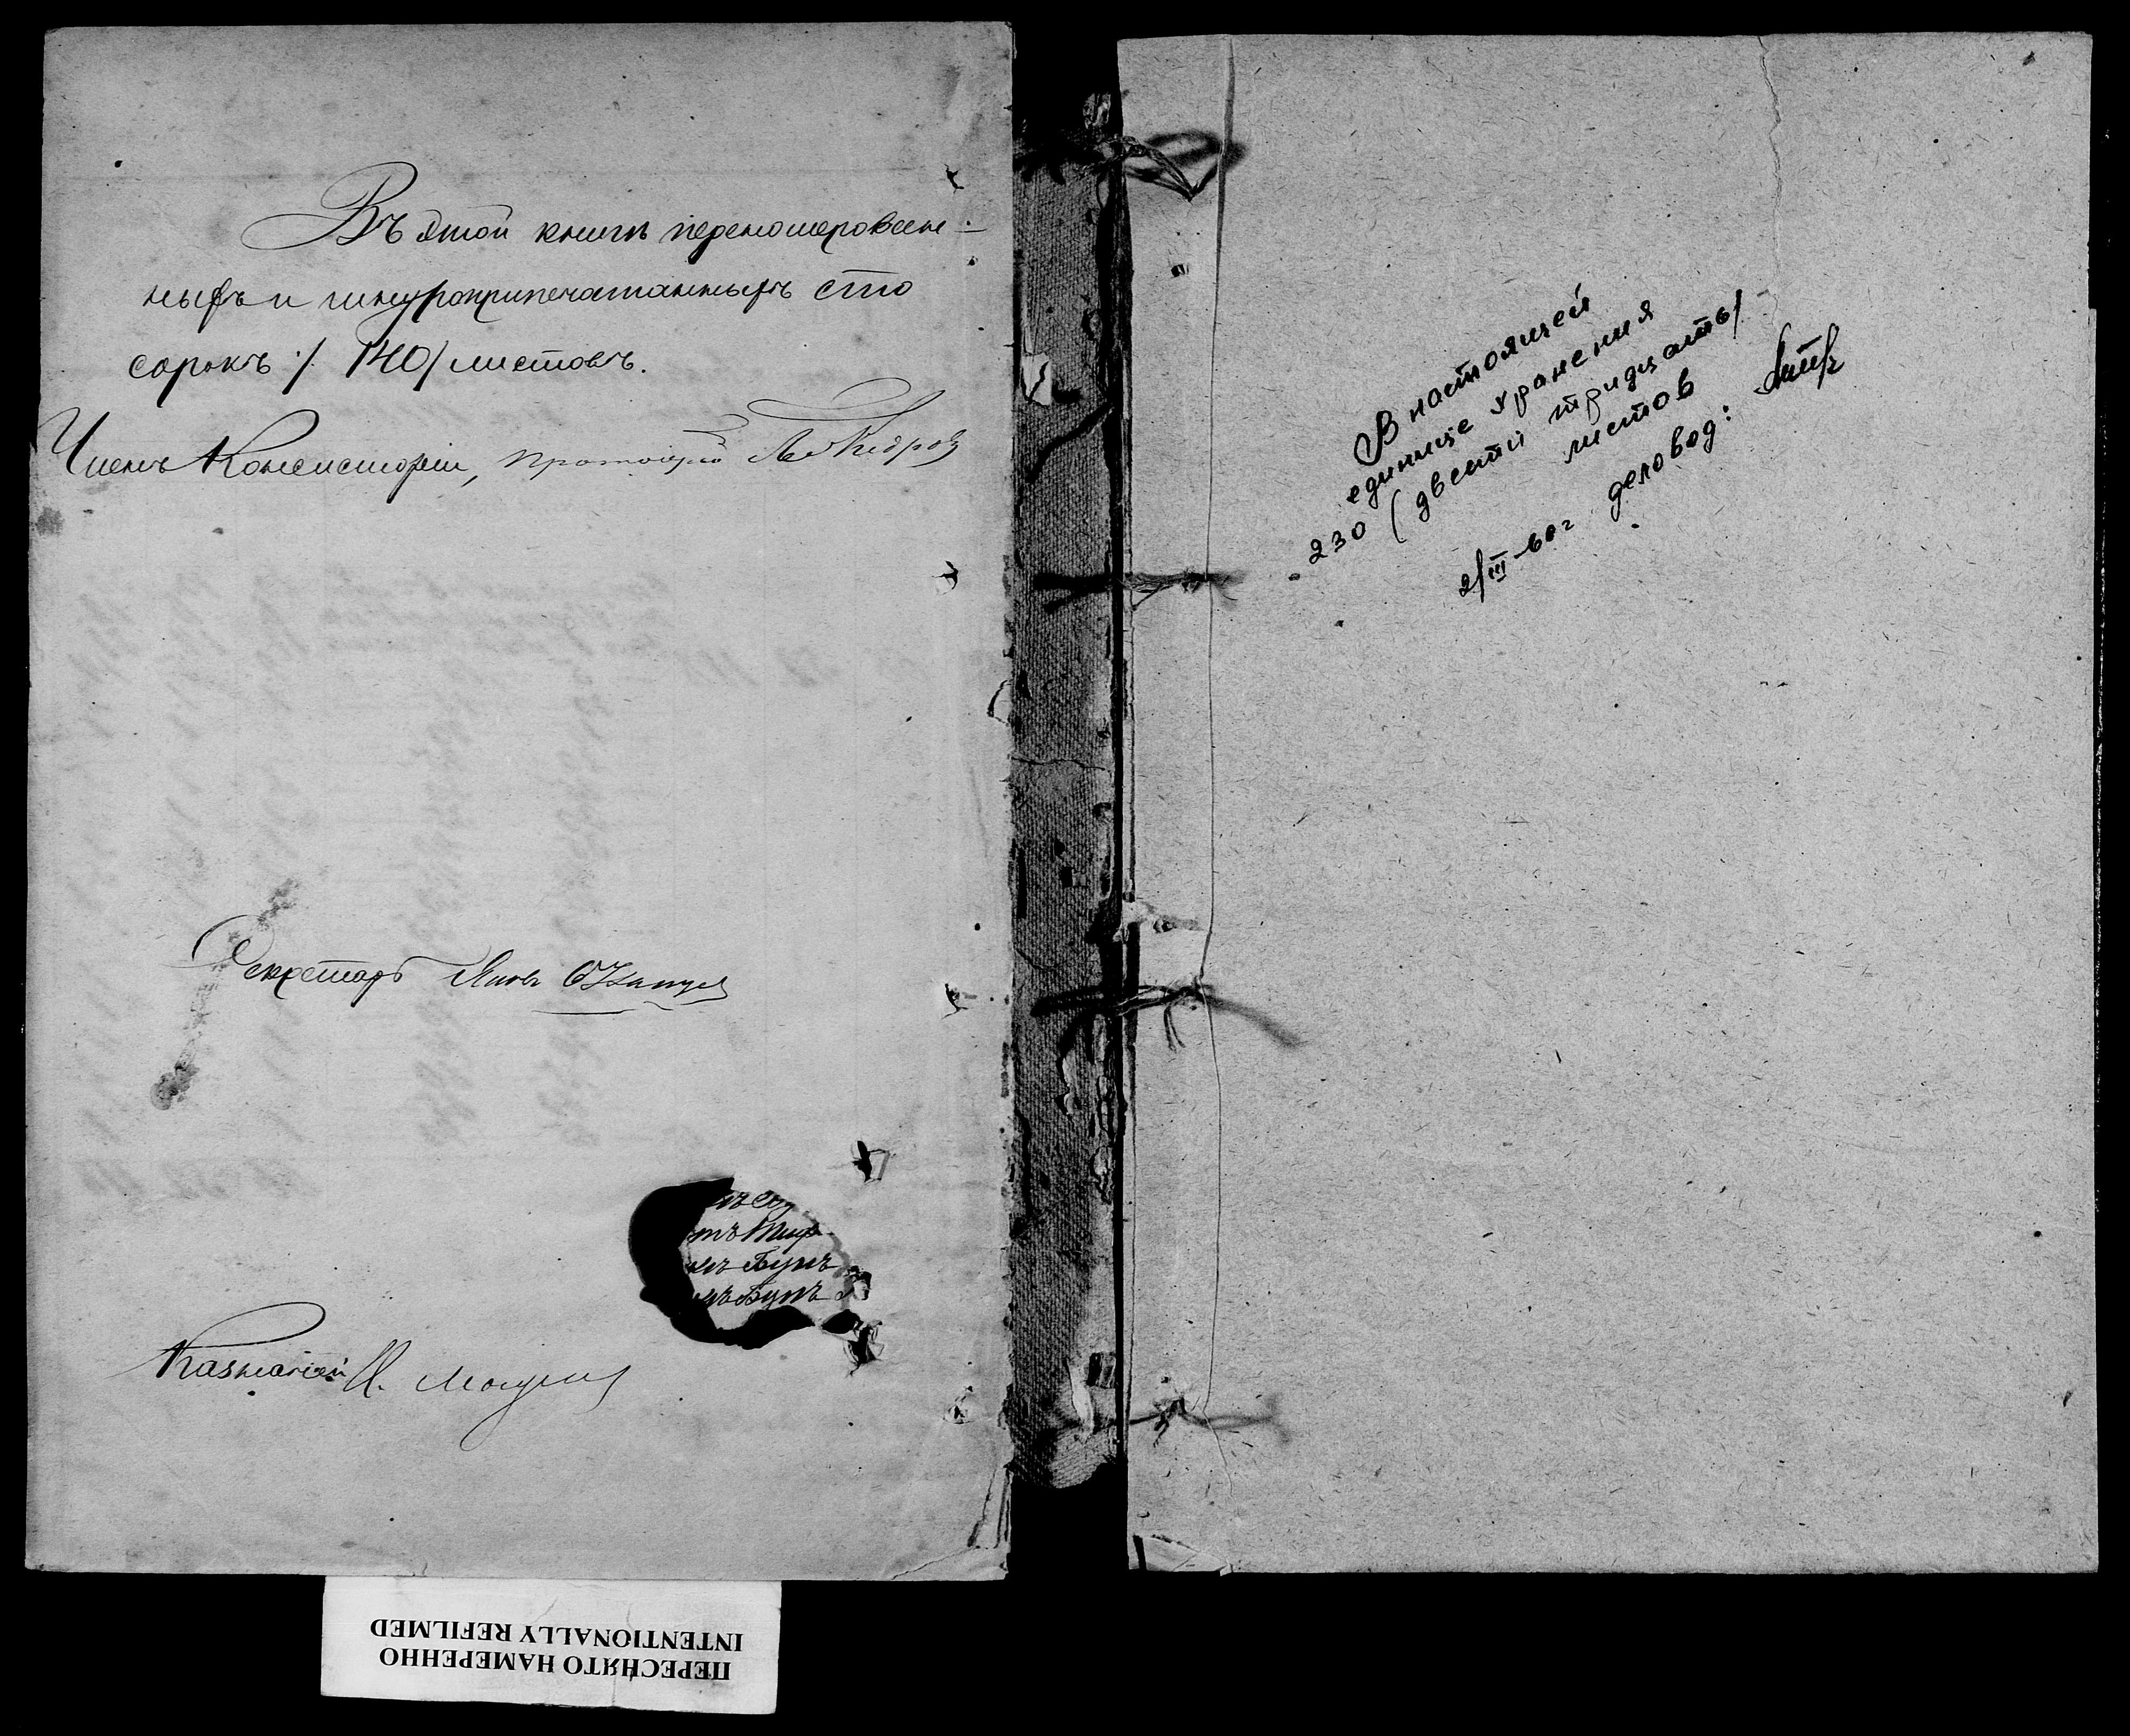 Въ этой книгѣ перенумерован-
ныхъ и шнуроприпечатанныхъ сто
сорокъ /140/ листовъ.
Членъ Консисторіи, протоіерей Ал. Кедровъ
Секретарь
Казначей
Бумъ
Бумъ
В настоящей
единице хранения
230 (двести тридцать)
листов
2/III-60г деловод:
ПЕРЕСНЯТО НАМЕРЕННО
INTENTIONALLY REFILMED